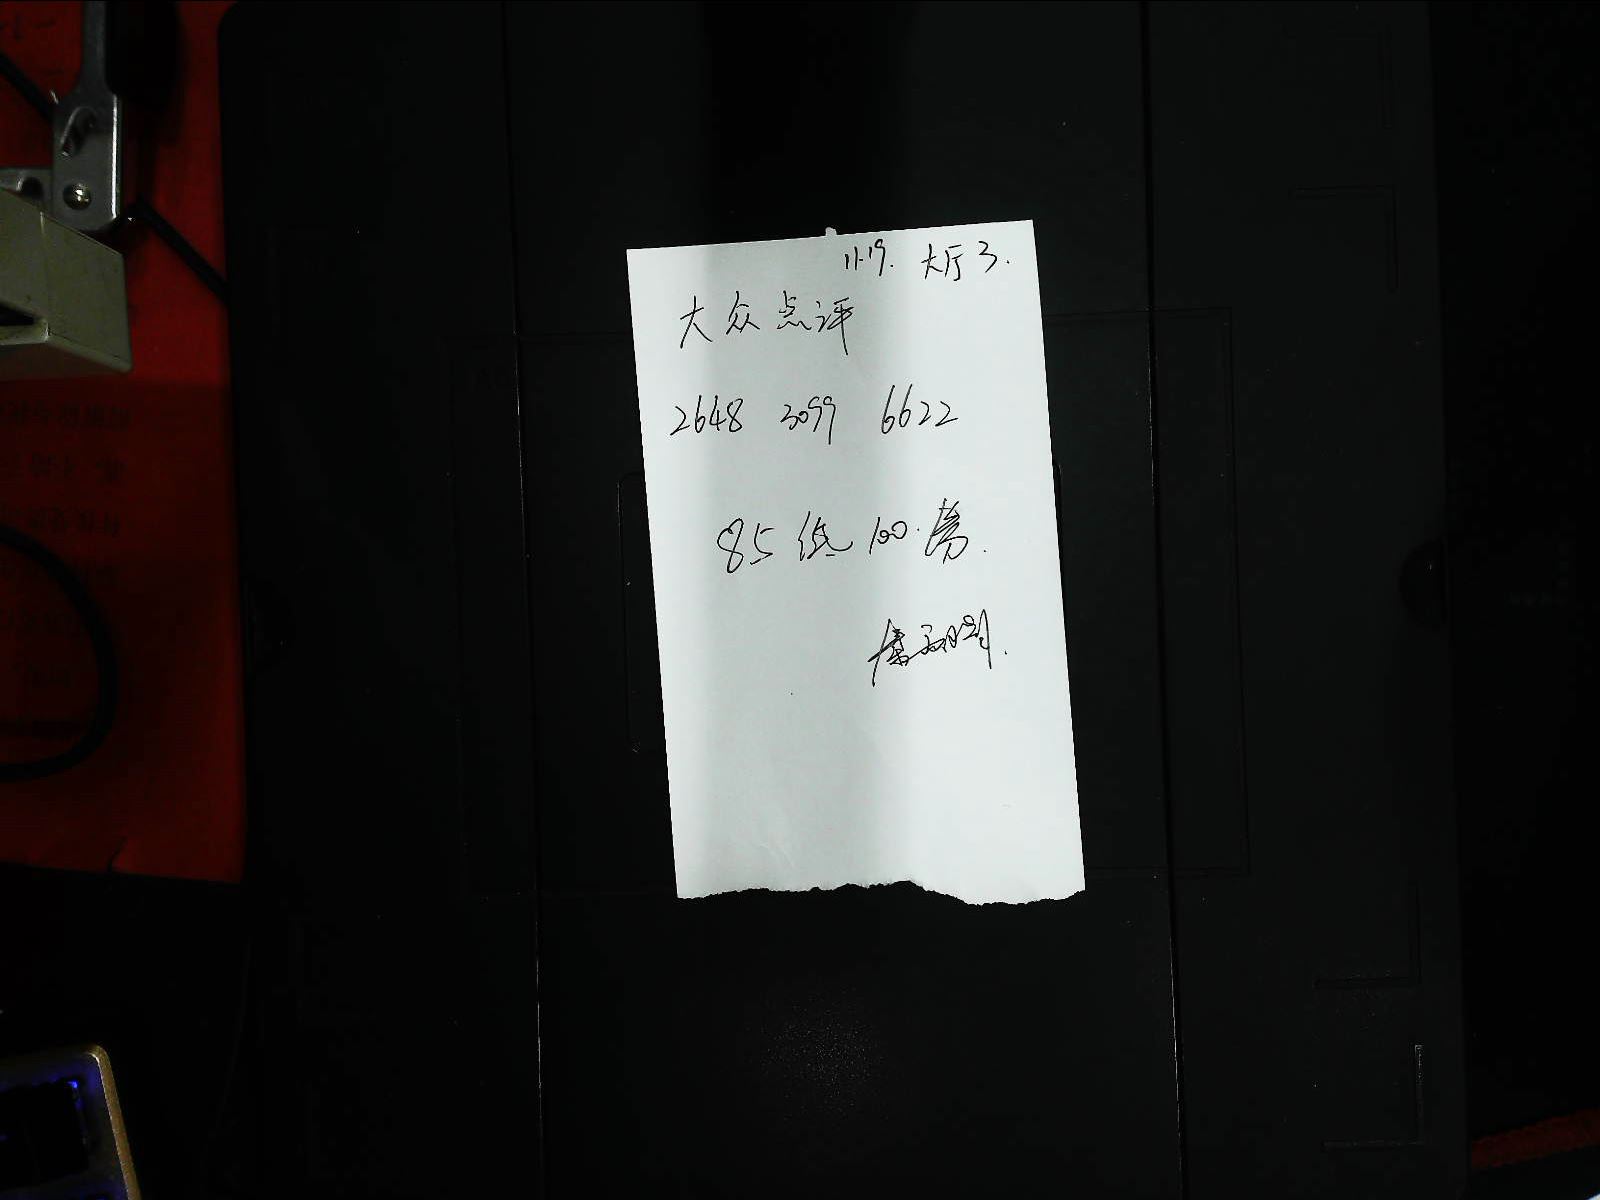 11.19. 大厅3.
大众点评
2648 3099 6622
85 低 100.券.